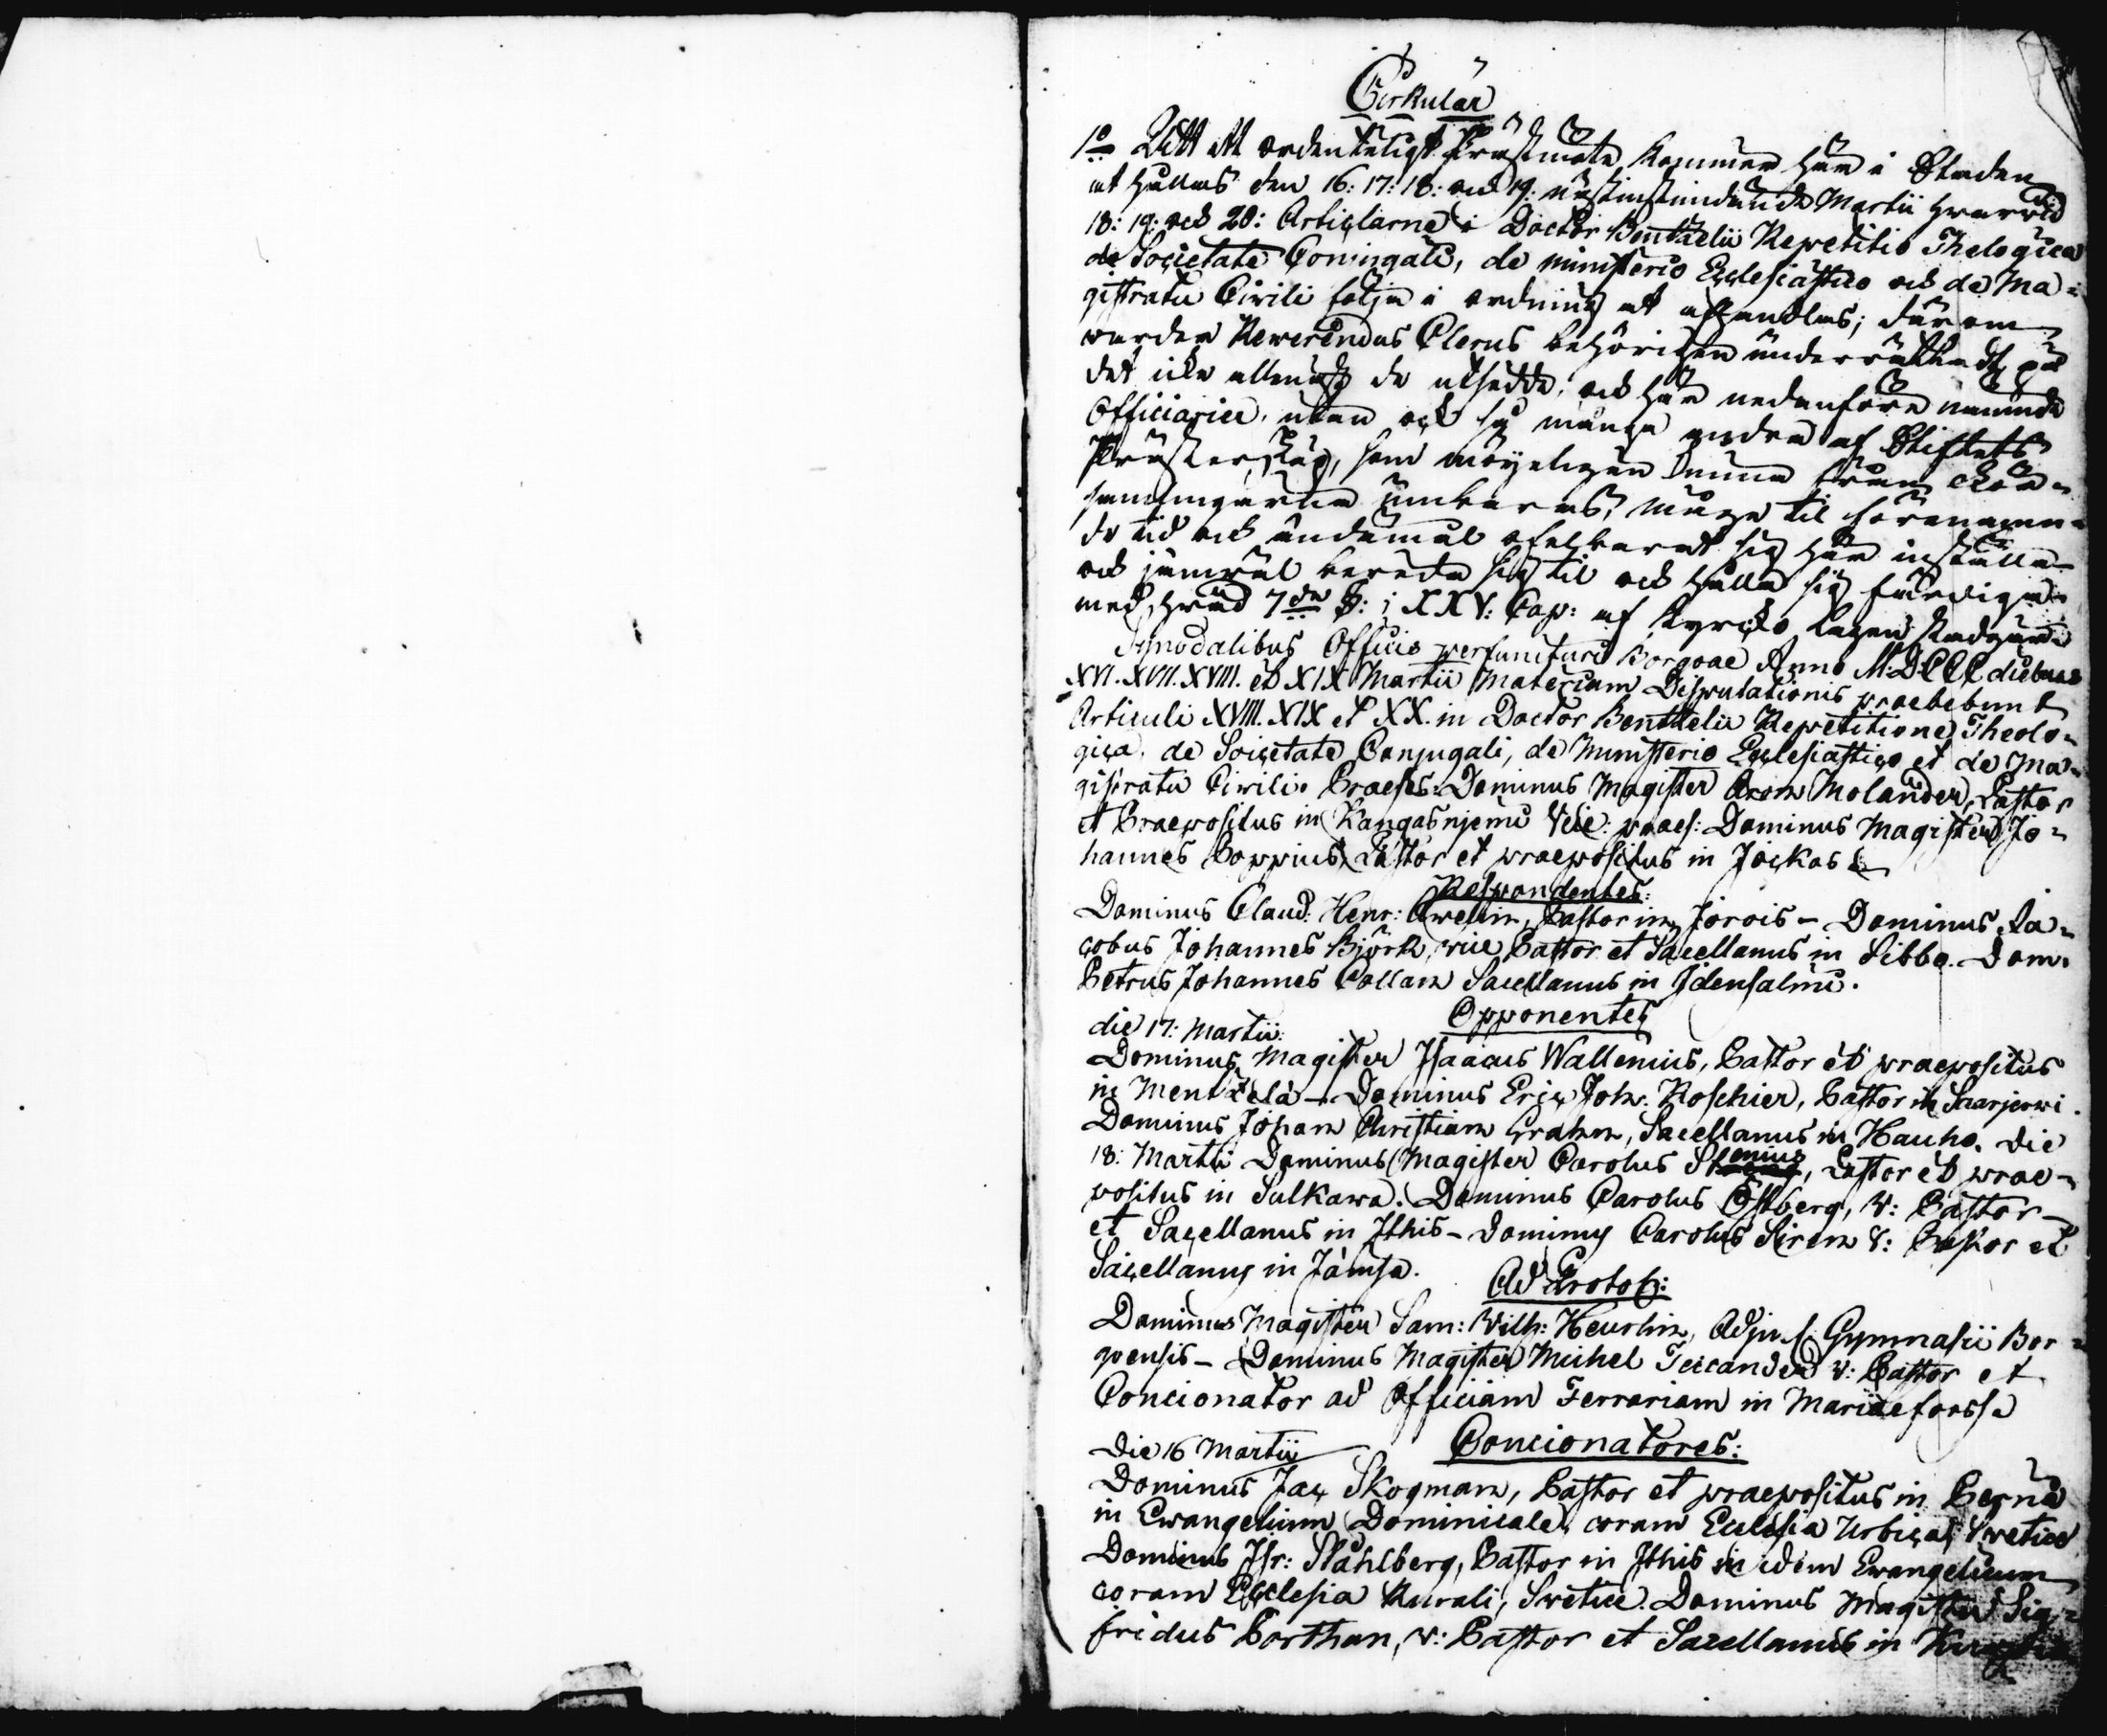 Cirkulär
1o Att ett ordenteligt Prästmöte kommer här i Staden
at hållas den 16: 17: 18: och 19: nästinstundande Martii hwarwid
18: 19: och 20: Articlarne i Doctor Benthelii Repetitio Thelogica
de Societate Coniugali, de ministerio Ecclesiastico och de Ma-
gistratu Civili följa i ordning at afhandlas; därom
warder Rewerendus Clerus behörigen underrättadt, på
det icke allenast de utsedde, och här nedanföre nämnde
Officiarier, utan ock så många andra af Stiftets
Prästerskap, som möyeligen kunna från
umbäras, måge til förenämn-
de tid och ändamål ofelbart sig här inställa
och jämwäl bereda sig til och hålla sig färdiga
med hwad 7de §: i XXV: Cap: af Kyrcko Lagen stadgar.
Synodalibus Officio perfuncturi Borgoae Anno M.DCCC diebus
XVI. XVII. XVIII. et XIX Martii Materiam Disputationis praebebunt
Articuli XVIII. XIX et XX. in Doctor Benthelii Repetitione Theolo-
gica, de Soicetate Conjugali, de Ministerio Ecclesiastico et de Ma-
gistratu Civili. Praeses: Dominus Magister Aron Molander, Pastor
et Praepositus in Kangasnjemi Vice: praes: Dominus Magister Jo-
hannes Poppius, Pastor et praepositus in Jockas
Respondentes:
Dominus Claud: Henr: Awelin, Pastor in Jorois - Dominus Ja-
cobus Johannes Björk, vice Pastor et Sacellanus in Sibbo. Dom:
Petrus Johannes Collan Sacellanus in Idensalmi.
Opponentes
die 17: Martii:
Dominus Magister Isaacus Wallenius, Pastor et praepositus
in Mentzelä - Dominus Eric Joh: Roschier, Pastor in Saarjerwi.
Dominus Johan Christian Grahn, Sacellanus in Hauho. Die
18: Martii Dominus Magister Carolus, Pastor et prae-
positus in Sulkawa. Dominus Carolus Östberg, V: Pastor
et Sacellanus in Ithis - Dominus Carolus Siren V: Pastor et
Sacellanus in Jämsä.
Ad Protok:
Dominus Magister Sam: Wilh: Heurlin, Adjunct: Gymnasii Bor-
goensis - Dominus Magister Michel Ticcander V: Pastor et
Concionator ad Officiam Ferrariam in Mariaeforss.
Concionatores:
Die 16 Martii
Dominus Jac Skogman, Pastor et praepositus in Perno
in Ewangelium Dominicale, coram Ecclesia Urbica, Svetice
Dominus Isr: Ståhlberg, Pastor in Ithis in idem Ewangelium
coram Ecclesia Rurali, Svetice. Dominus Magister Sig-
fridus Porthan, V: Pastor et Sacellanus in